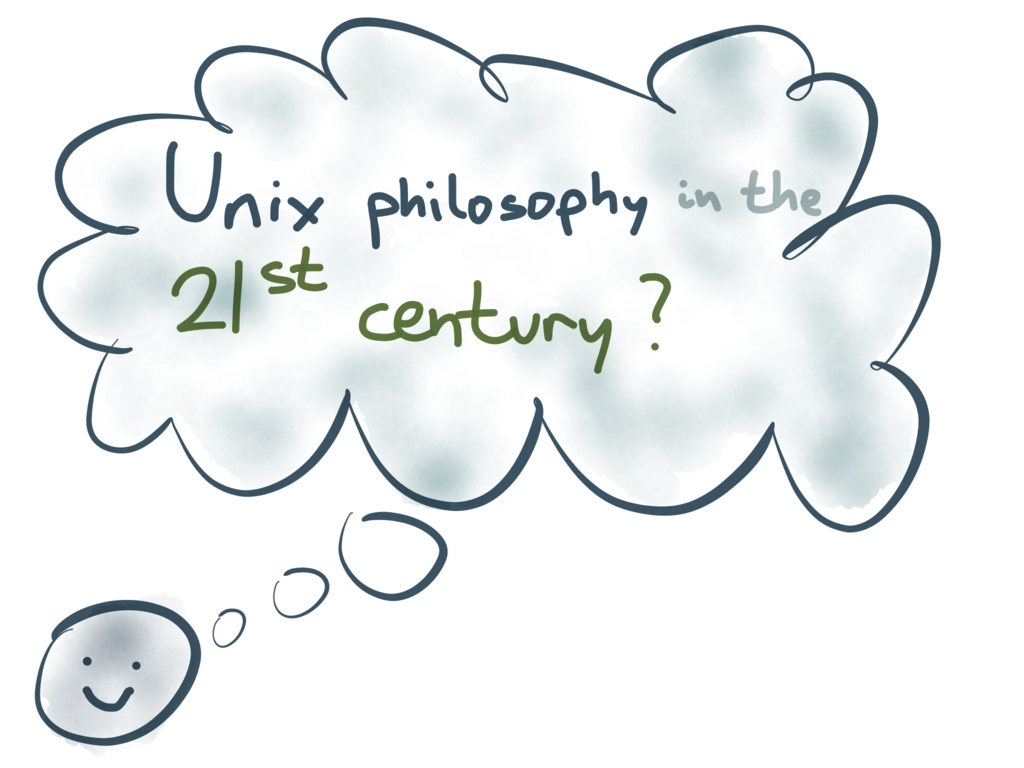 Unix philosophy in the
21st century?